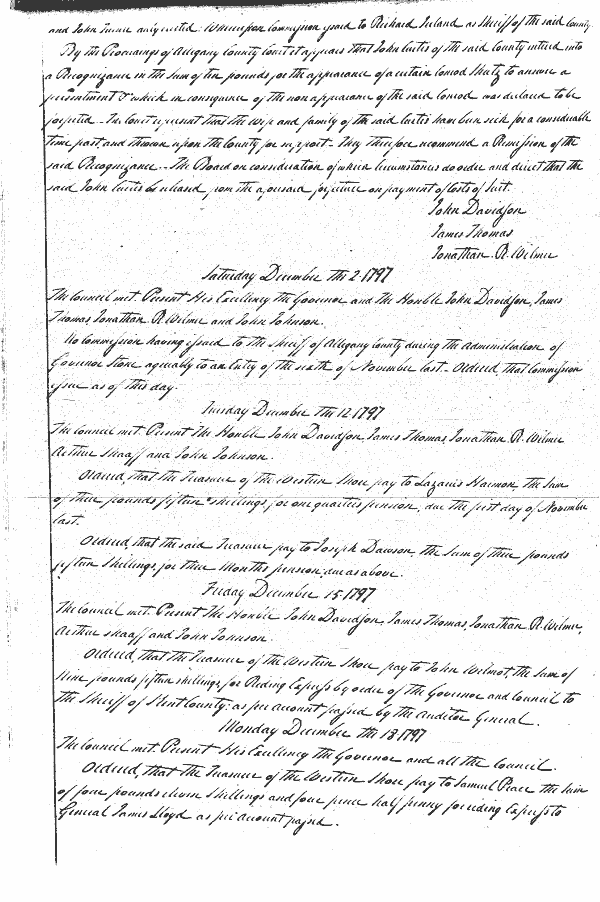 and John           Whereupon Commission issued to Richard Ireland as Sheriff of the said County.
By the Proceedings of Allegany County Court it appears that John Curtis of the said County entered into
a Recognizance in the Sum of ten pounds for the appearance of a certain Conrod Shutz to answer a
presentment & which in consequence of the non appearance of the said Conrod was declared to be
forfeited - The Court represent that the wife and family of the said Curtis have been sick for a considerable
time past and thrown upon the County for support - They therefore recommend a Remission of the
said Recognizance - The Board on consideration of which Circumstances do order and direct that the
said John Curtis be released from the aforesaid forfeiture on payment of Costs of Suit.
John Davidson
James Thomas
Jonathan R. Wilmer
Saturday December the 2. 1797
The Council met. Present His Excellency the Govenor and the Honble John Davidson, James
Thomas, Jonathan R. Wilmer and John Johnson.
No Commission having issued to the Sheriff of Allegany County during the administration of
Govenor Stone agreeably to an Entry of the sixth of November last. Ordered, that Commission
issue as of this day.
Tuesday December the 12. 1797
The Council met. Present The Honble John Davidson, James Thomas, Jonathan R. Wilmer
Arthur Shaaff and John Johnson.
Ordered, that the Treasurer of the Western Shore pay to Lazarus Harmon, the Sum
of three pounds fifteen shillings, for one quarters pension, due the first day of November
last.
Ordered, that the said Treasurer pay to Joseph Dawson, the Sum of three pounds
fifteen Shillings for three Months pension, due as above.
Friday December 15. 1797
The Council met. Present The Honble John Davidson, James Thomas, Jonathan R. Wilmer,
Arthur Shaaff and John Johnson.
Ordered, that the Treasurer of the Western Shore pay to John Wilmot, the Sum of
Nine pounds fifteen shillings, for Riding Express by order of the Govenor and Council to
the Sheriff of Kent County: as per account passed by the Auditor General.
Monday December the 18. 1797
The Council met. Present His Excellency the Govenor and all the Council.
Ordered, that the Treasurer of the Western Shore pay to Samuel Peace the Sum
of four pounds eleven Shillings and four pence half penny for riding Express to
General James Lloyd as per account passed.